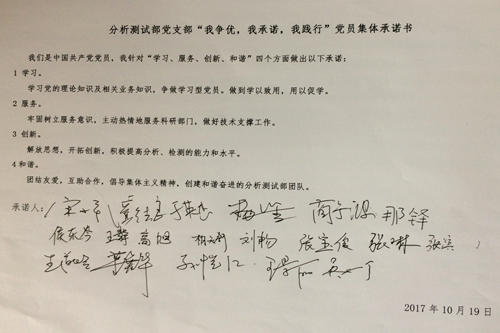 分析测试部党支部“我争优，我承诺，我践行”党员集体承诺书
我们是中国共产党党员，我针对“学习、服务、创新、和谐”四个方面做出以下承诺：
1 学习。
学习党的理论知识及相关业务知识，争做学习型党员。做到学以致用，用以促学。
2 服务。
牢固树立服务意识，主动热情地服务科研部门，做好技术支撑工作。
3 创新。
解放思想，开拓创新，积极提高分析、检测的能力和水平。
4 和谐。
团结友爱，互助合作，倡导集体主义精神，创建和谐奋进的分析测试部团队。
承诺人：
高旭 刘杨 张宝俊 张滨
2017 年 10 月 19 日